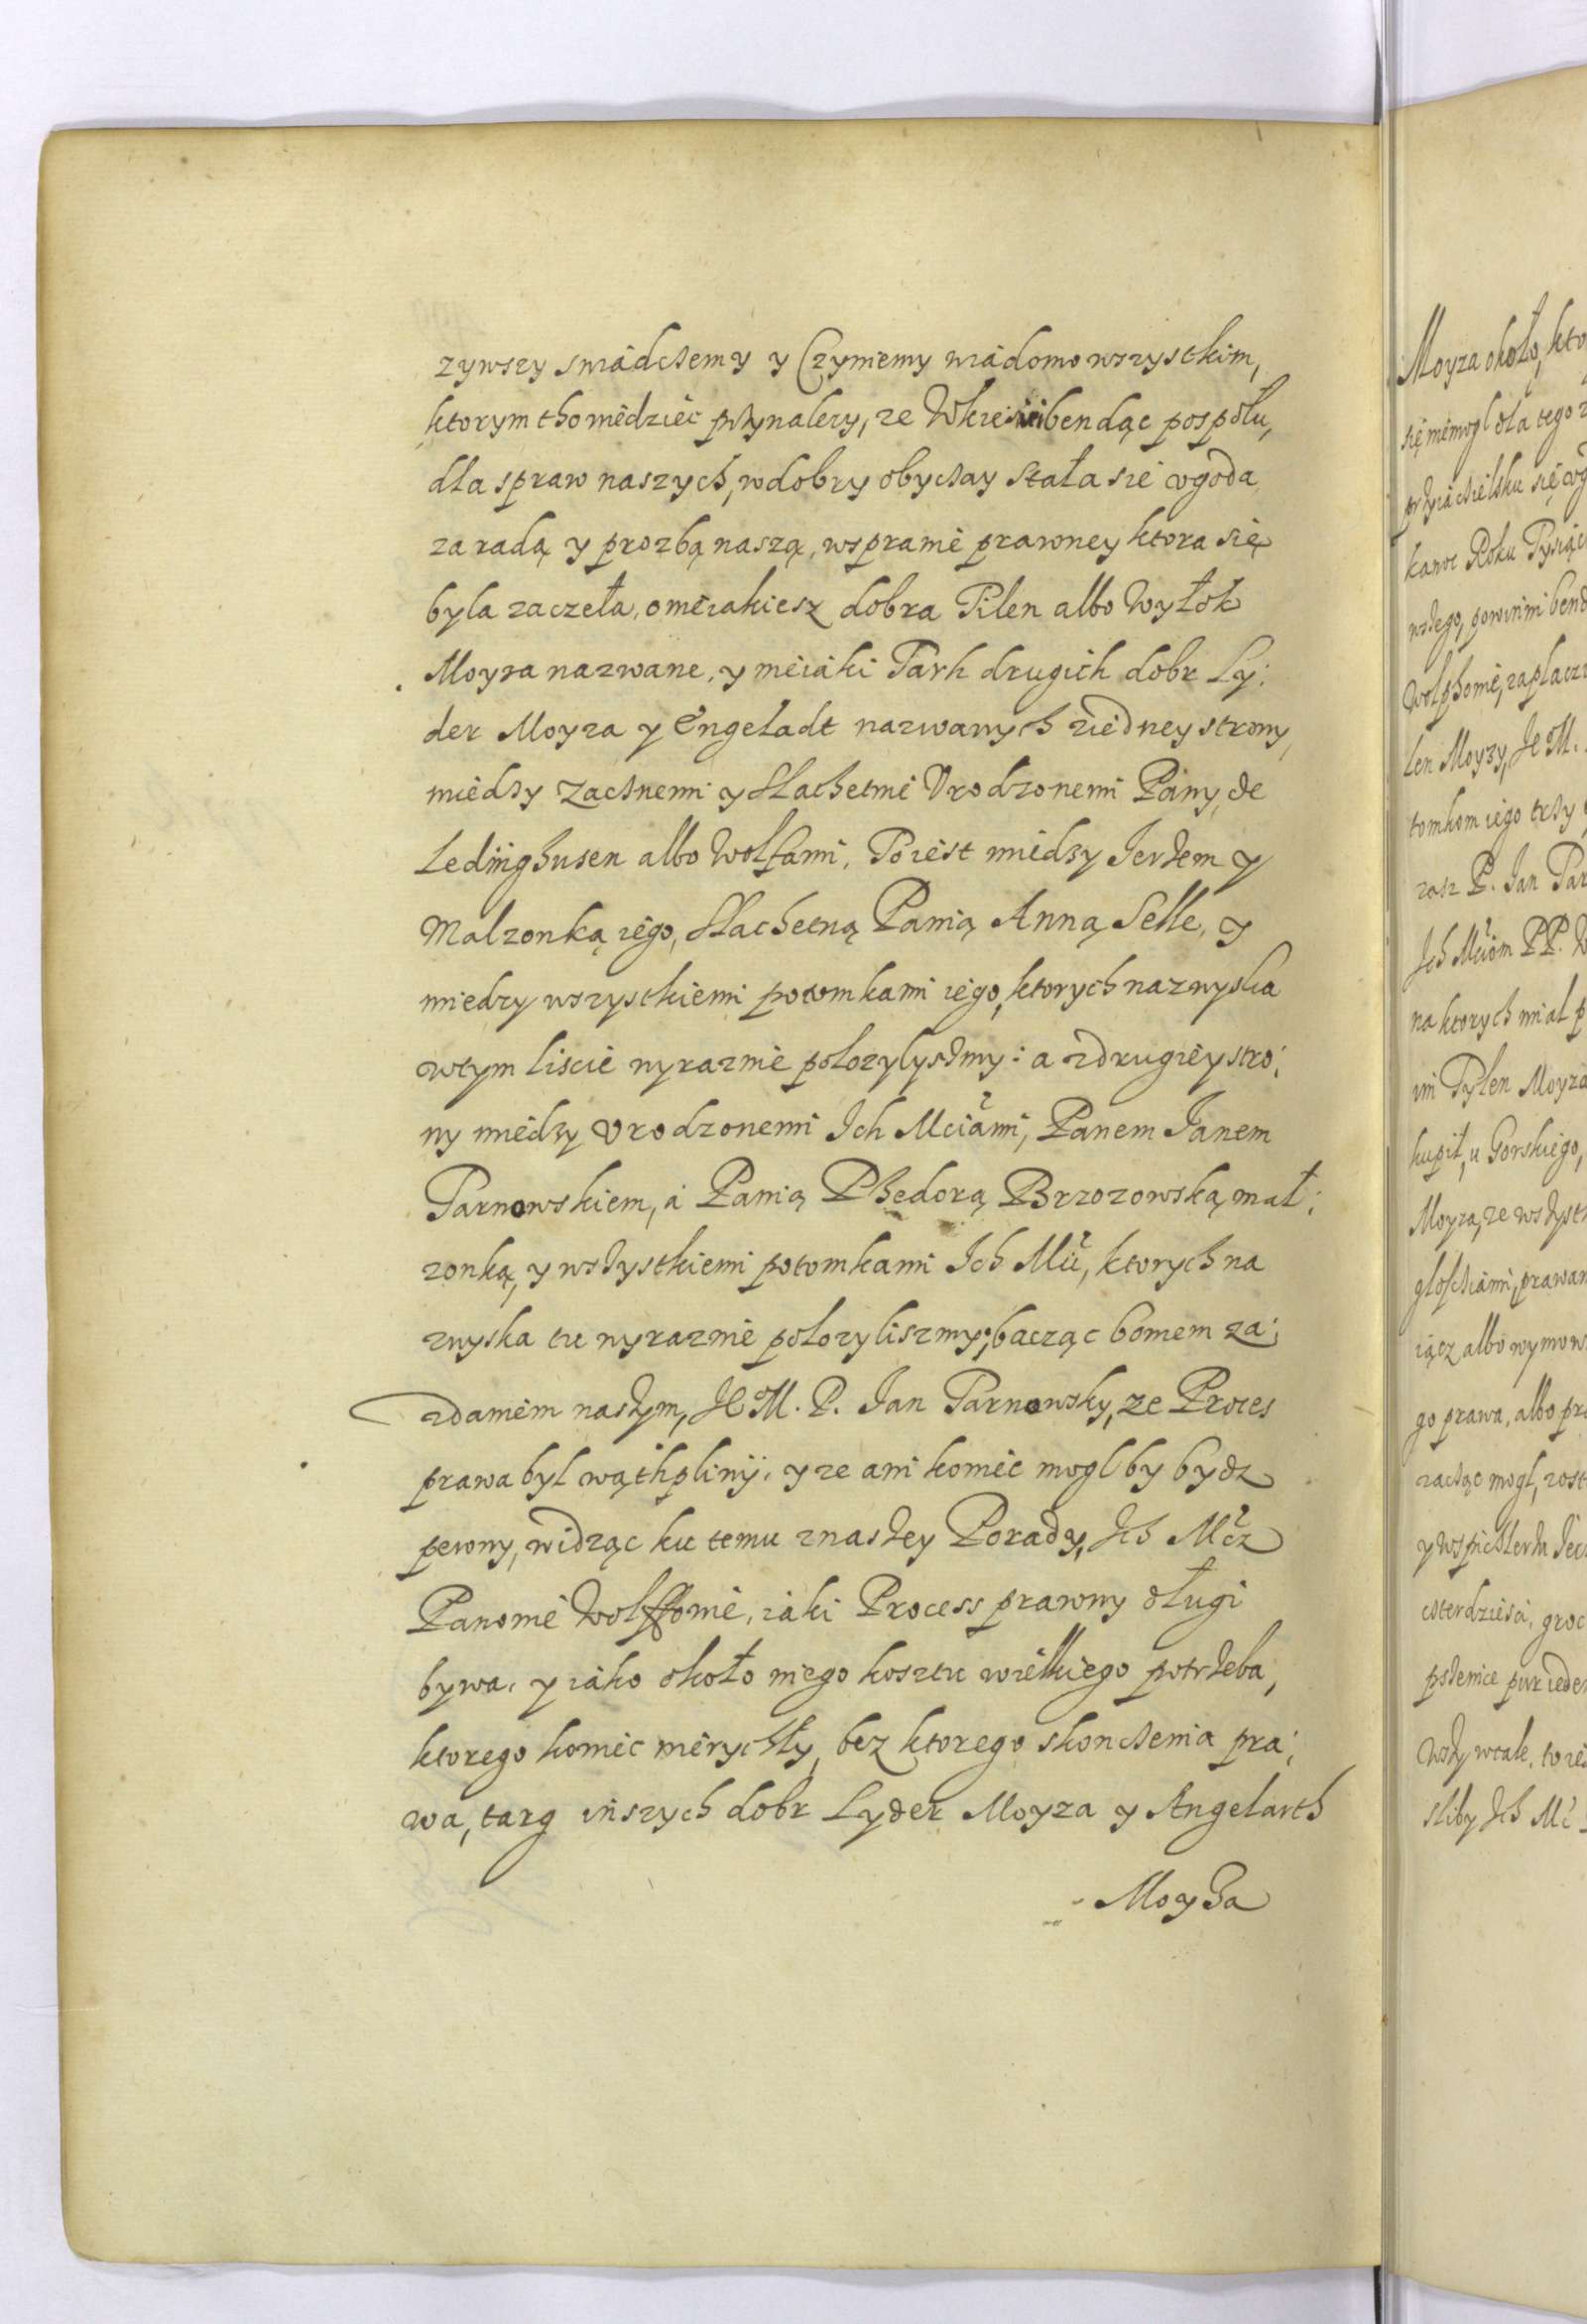 zywszy swiadczemy y Czyniemy wiadomo wszystkim,
ktorym tho wiedziec przynalezy, ze Wkiesiu bendąc pospołu,
dla spraw naszych, w dobry obyczay stała sie vgoda
za radą y prozbą naszą, wsprawie prawney ktora się
byla zaczeła, o nieiakiesz dobra Pilen albo Wyłok
Moyza nazwane, y nieiaki Tarh drugich dobr Ly:
der Moyza y Engeladt nazwanych ziedney strony,
miedzy Zacznemi y Slachetnie Vrodzonemi Pány, de
Ledinghusen albo Wolfami, To iest miedzy Jerzem y
Malzonką iego, Slachetną Panią Anną Selle, y
miedzy wszystkiemi potomkami iego, ktorych nazwyska
wtym liscie wyraznie polozylyszmy: a zdrugiey stro:
ny miedzy Vrodzonemi Ich Mciami, Panem Janem
Tarnowskiem, á Panią Phedorą Brzozowską mał:
zonką, y wszystkiemi potomkami Ich Mci, ktorych na
zwyska tu wyraznie polozyliszmy; bacząc bowiem za:
zdaniem naszym, Je M. P. Jan Tarnowsky, ze Proces
prawa byl wąthpliwÿ, y ze ani koniec mogl by bydz
pewny, widząc ku temu znaszey Porady, Ich Mcz
Panowie Wolffowie, iaki Process prawny długi
bywa, y iako około niego kosztu wielkiego potrzeba,
ktorego koniec nierychly, bez ktorego skonczenia pra:
wa, targ inszych dobr Lyder Moyza y Angelarth
Moyza
Moyza około, kto
się niemogl dla tego
kawe Roku Tysiąc
len Moyzy, Je M.
tomkom iego trzy
rasz P. Jan Tar
Ich Mciom PP. W
na ktorych mial p
mi Pylen Moyza
kupił, u Gorskiego,
Moyza, ze wszyst
iącz albo wymow
go prawa, albo pra
zacząc mogl, zost
czterdziesci, groc
sliby Ich Mc